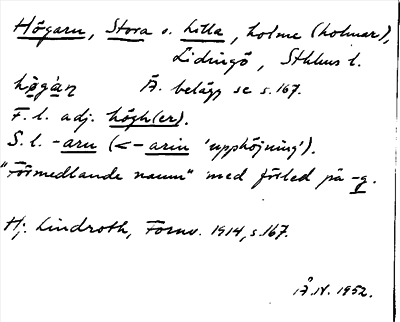 Högarn, Stora o. Lilla, holme (holmar),
Lidingö, Sthlms l.
hö̀gán Ä. belägg se s. 167.
F. l. adj. högh(er).
S. l. -arn (<- arin 'upphöjning').
"Förmedlande namn" med förled på -g.
Hj. Lindroth, Fornv. 1914, s. 167.
Å. N. 1952.